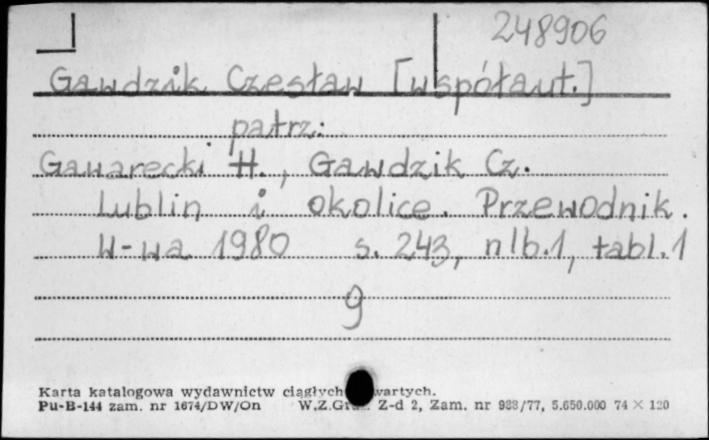 248906
Gawdzik Czesław [współaut.]
patrz:
Gawarecki H., Gawdzik Cz.
Lublin i okolice. Przewodnik.
W-wa 1980 s. 243, nlb.1, tabl.1
9
Karta katalogowa wydawnictw ciągłych
Pu-B-144 zam. nr 1674/DW/On W.Z.Graf. Z-d 2, Zam. nr 988/77, 5.650.000 74 × 120